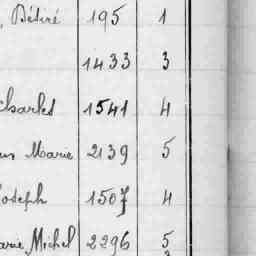 , Désiré 195 1
1433 3
Charles 1541 4
Marie 2139 5
Joseph 1507 4
Marie, Michel 2296 5